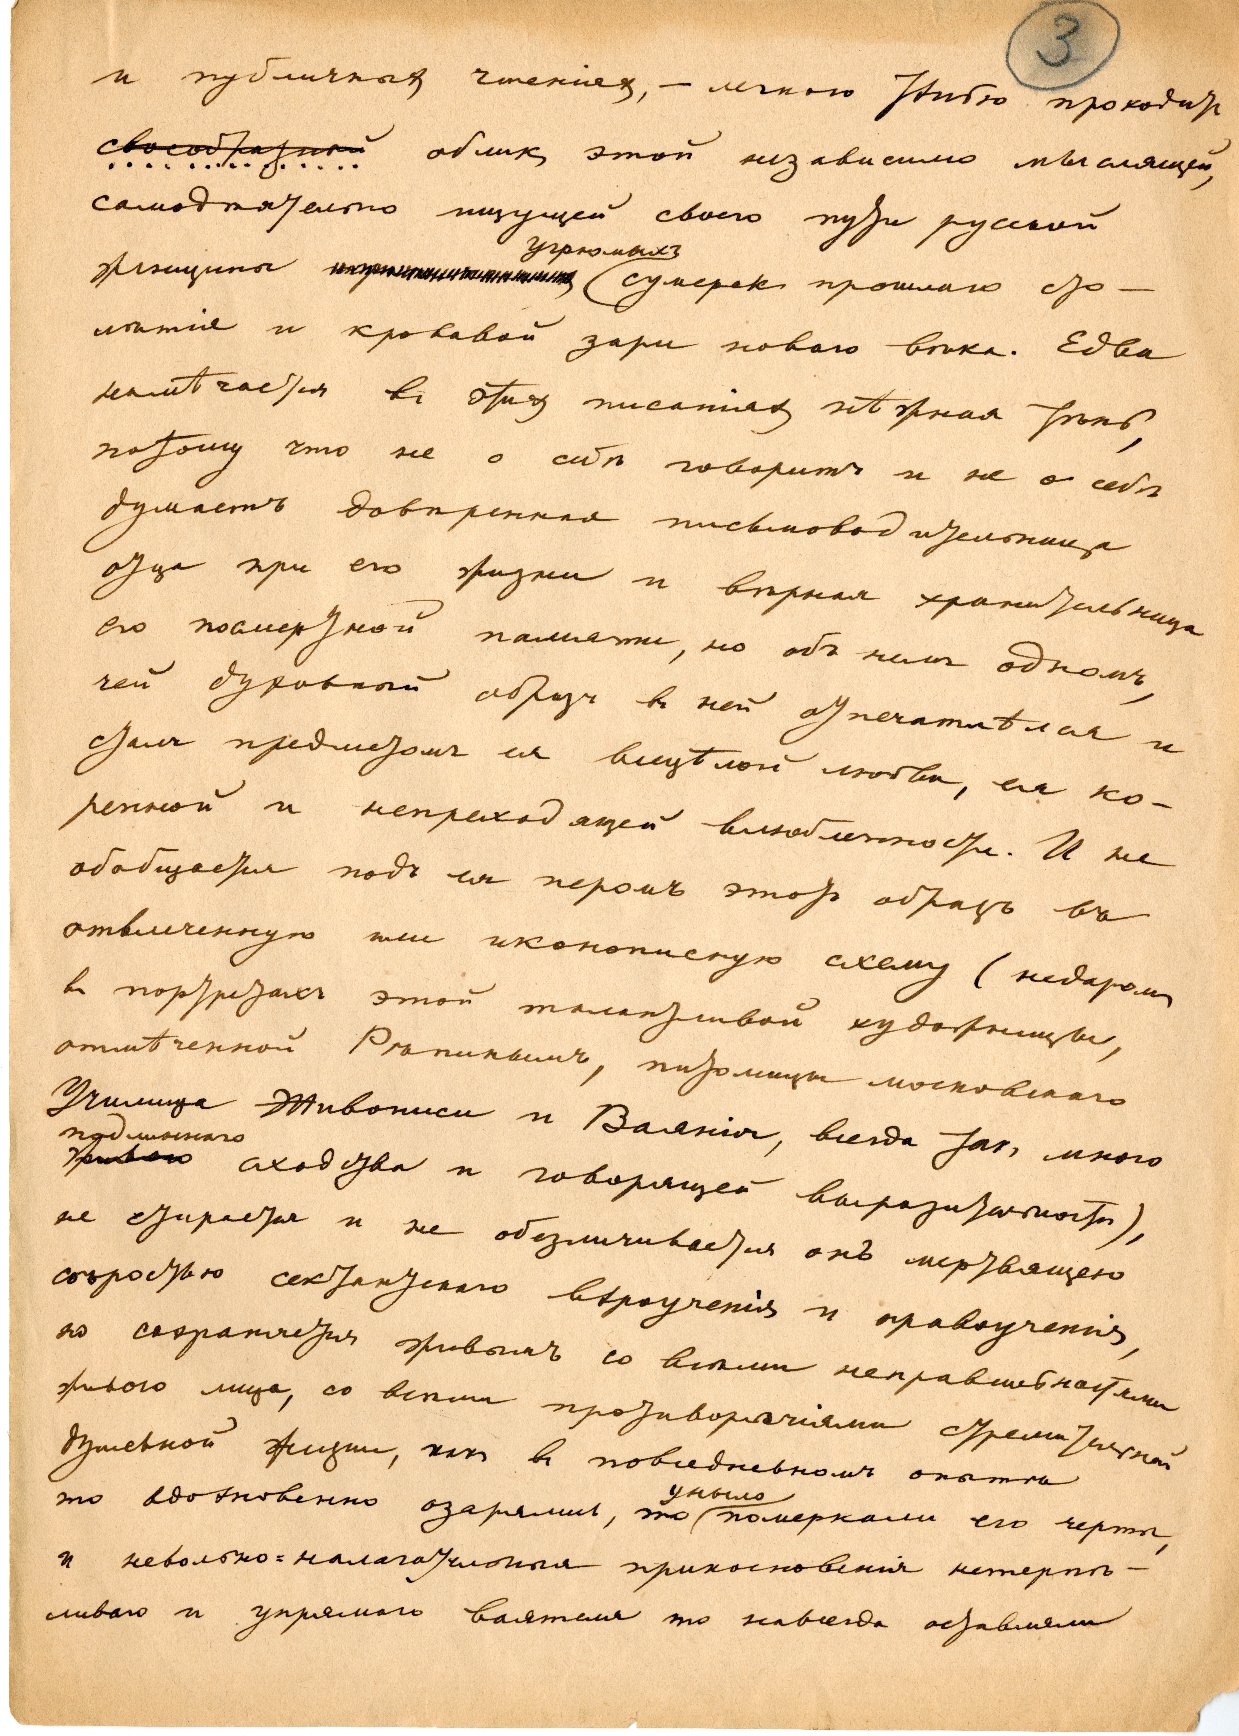 3
и публичныхъ чтеніяхъ, — легкою тѣнью проходитъ
своеобразный обликъ этой независимо мыслящей,
самодѣятельно ищущей своего пути русской
женщины угрюмыхъ сумерекъ прошлаго сто-
лѣтія и кровавой зари новаго вѣка. Едва
намѣчается въ этихъ писаніяхъ нѣжная тѣнь,
потому что не о себѣ говоритъ и не о себѣ
думаетъ довѣренная письмоводительница
отца при его жизни и вѣрная хранительница
его посмертной памяти, но объ немъ одномъ,
чей духовный образъ въ ней отпечатлѣлся и
сталъ предметомъ ея всецѣлой любви, ея ко-
ренной и непреходящей влюбленности. И не
обобщается подъ ея перомъ этотъ образъ въ
отвлеченную или иконописную схему (недаромъ
въ портретахъ этой талантливой художницы,
отмѣченной Рѣпинымъ, питомицы московскаго
Училища Живописи и Ваянія, всегда такъ много
подлиннаго
живого сходства и говорящей выразительности),
не стирается и не обезличивается онъ мертвящею
сѣростью сектантскаго вѣроученія и нравоученія,
но сохраняется живымъ со всѣми неправильностями
живого лица, со всѣми противорѣчіями стремительной
душевной жизни, какъ въ повседневномъ опытѣ
то вдохновенно озарялись, то уныло померкали его черты,
и невольно=налагательныя прикосновенія нетерпѣ-
ливаго и упрямаго ваятеля то навсегда оставляли